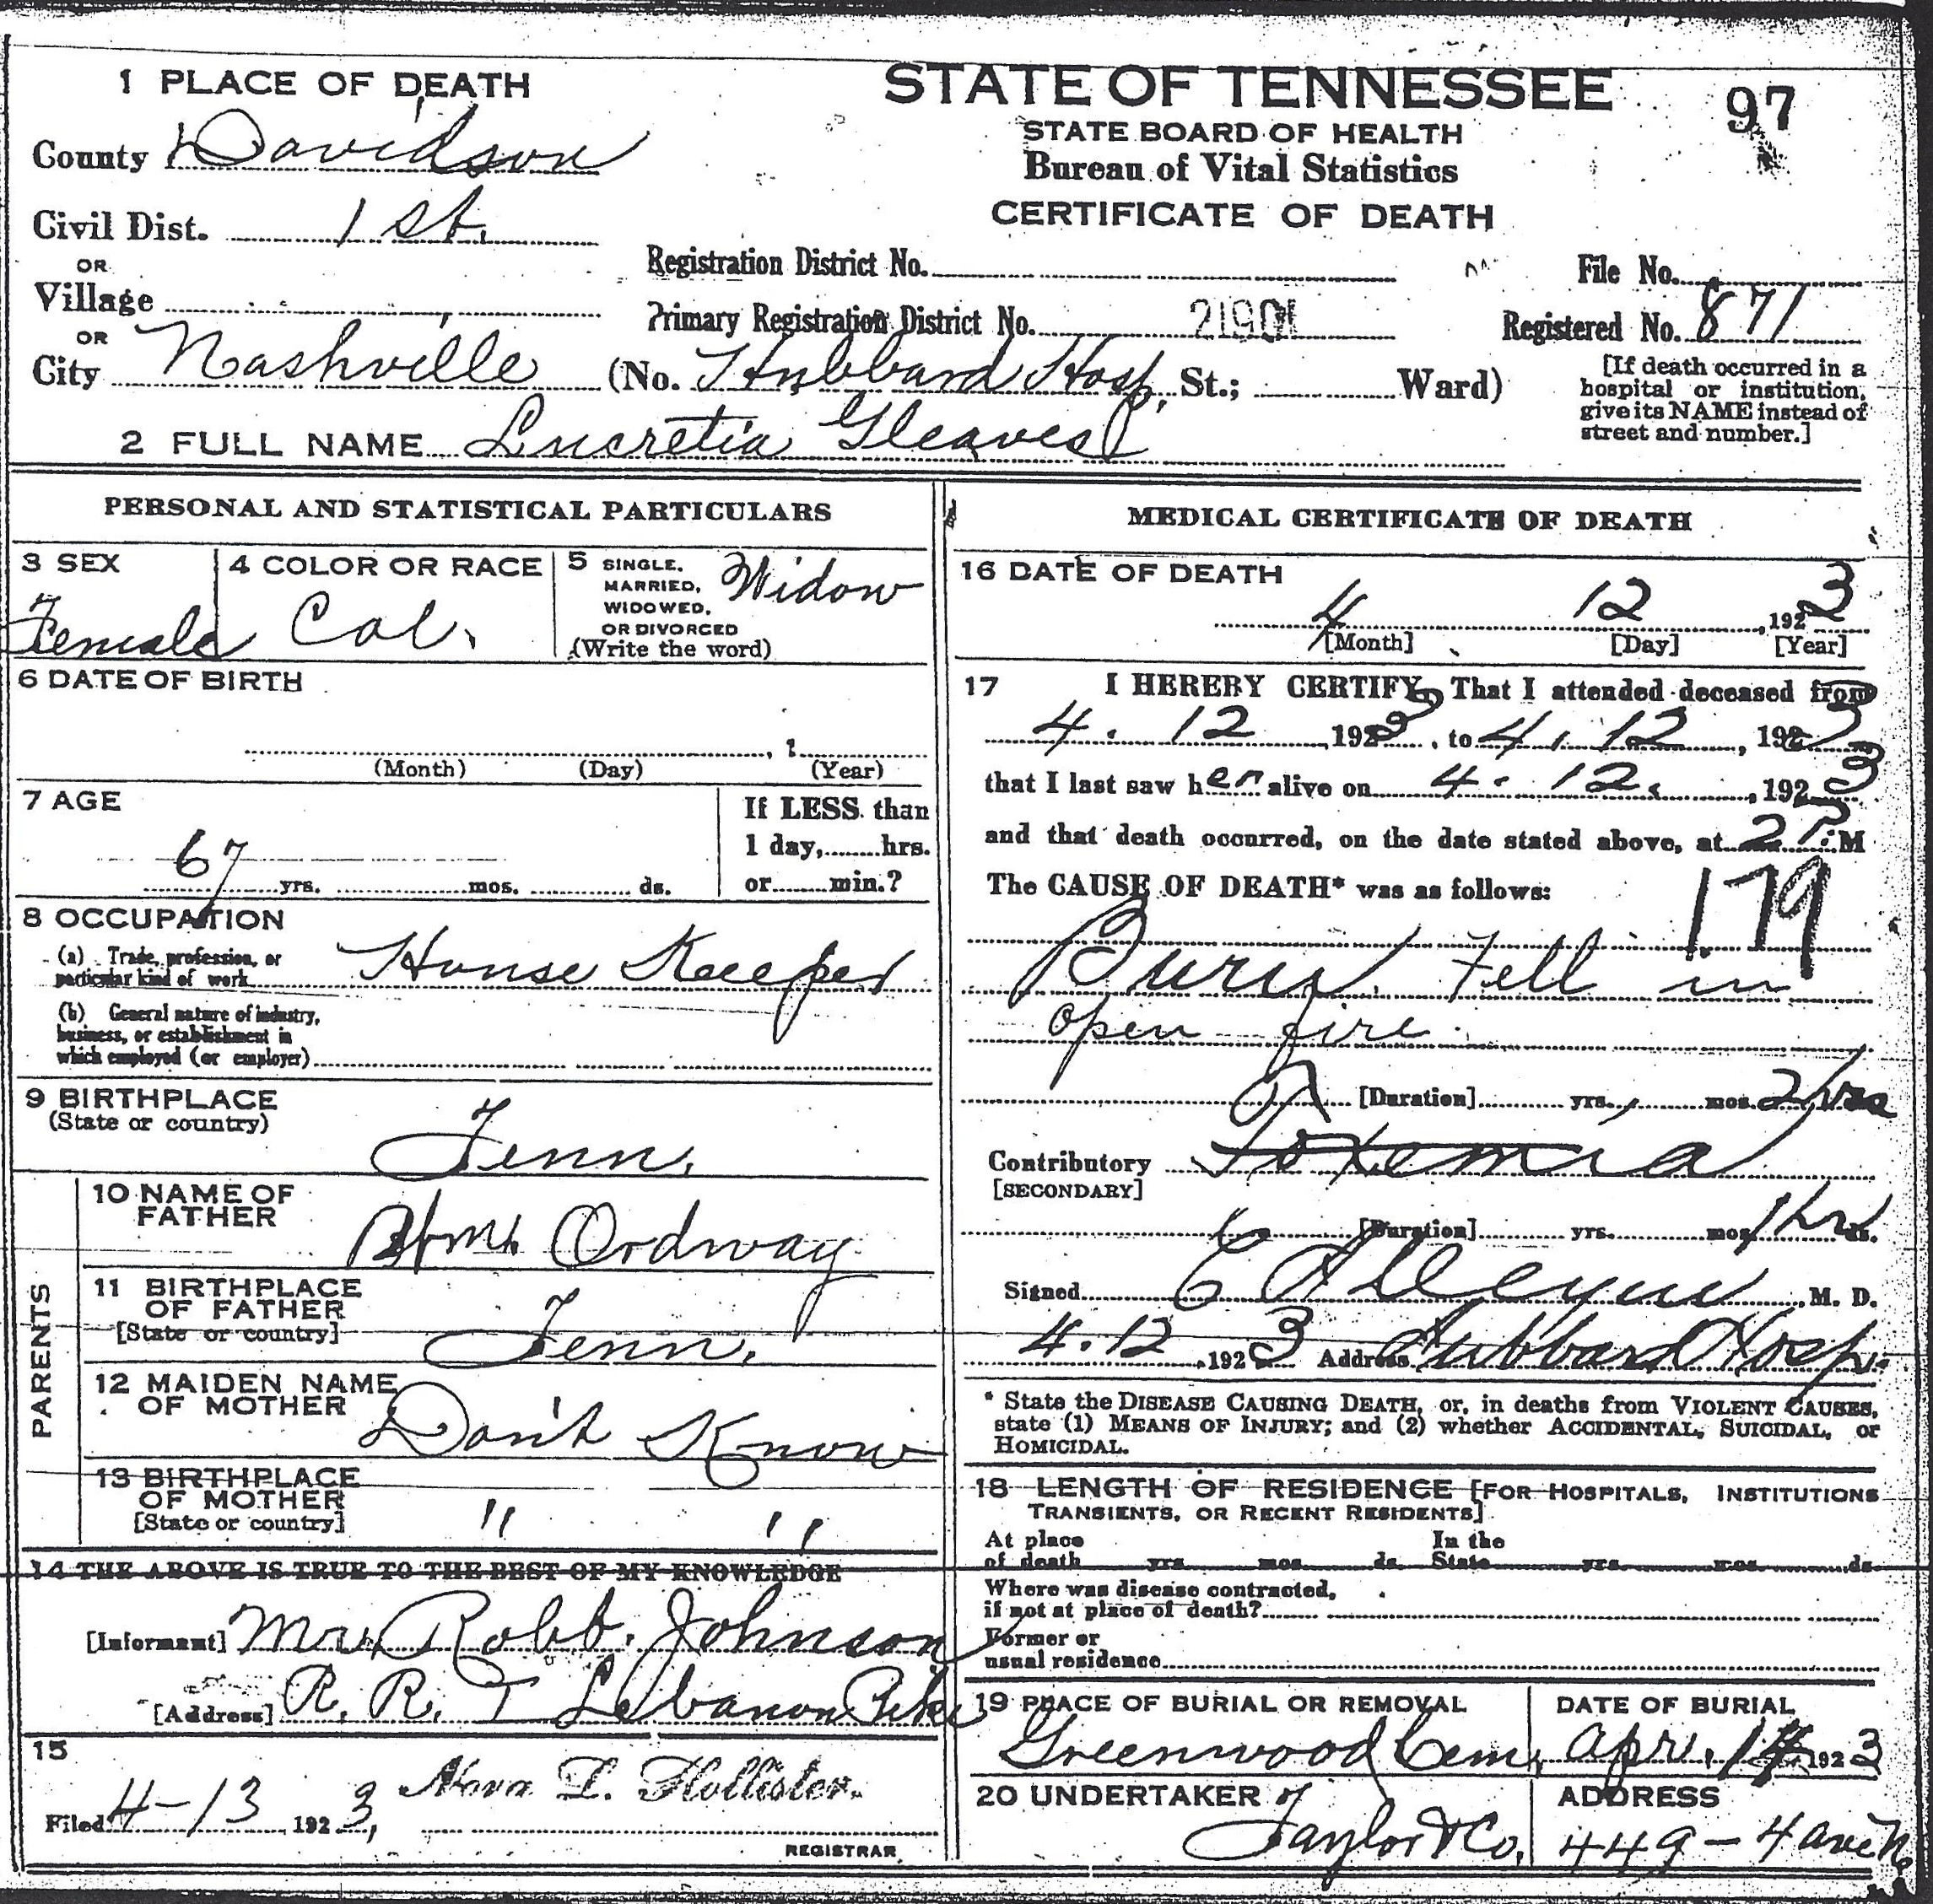 1 PLACE OF DEATH
STATE OF TENNESSEE
97
STATE BOARD OF HEALTH
Bureau of Vital Statistics
CERTIFICATE OF DEATH
County Davidson
Civil Dist. 1st.
OR
Village
OR
City Nashville (No. Hubbard Hosp, St.; Ward)
Registration District No.
File No.
Primary Registration District No. 21901
Registered No. 871
[If death occurred in a
hospital or institution,
give its NAME instead of
street and number.]
2 FULL NAME Lucretia Gleaves
PERSONAL AND STATISTICAL PARTICULARS
3 SEX
Female
4 COLOR OR RACE
Col.
5 SINGLE,
MARRIED,
WIDOWED,
OR DIVORCED
(Write the word)
Widow
6 DATE OF BIRTH
, 1
(Month) (Day) (Year)
7 AGE
67
yrs. mos. ds.
If LESS than
1 day, hrs.
or min.?
8 OCCUPATION
(a) Trade, profession, or
particular kind of work House Keeper
(b) General nature of industry,
business, or establishment in
which employed (or employer)
9 BIRTHPLACE
(State or country)
Tenn.
PARENTS
10 NAME OF
FATHER
Ordway
11 BIRTHPLACE
OF FATHER
[State or country]
Tenn.
12 MAIDEN NAME
OF MOTHER
Don't Know
13 BIRTHPLACE
OF MOTHER
[State or country]
" "
14 THE ABOVE IS TRUE TO THE BEST OF MY KNOWLEDGE
[Informant] Mrs. Robb. Johnson
[Address] R. R. 1 Lebanon Pike
15
Filed 4-13 1923, Nora L. Hollister.
REGISTRAR
MEDICAL CERTIFICATE OF DEATH
16 DATE OF DEATH
4 12 ,1923
[Month] [Day] [Year]
17 I HEREBY CERTIFY, That I attended deceased from
4. 12 1923, to 4. 12, 1923
that I last saw her alive on 4. 12. , 1923
and that death occurred, on the date stated above, at 2 P. M
The CAUSE OF DEATH* was as follows:
179
Burns. Fell in
open fire.
[Duration] yrs. mos. 2 hrs
Contributory Toxemia
[SECONDARY]
[Duration] yrs. mos. 1 hr ds.
Signed C Alleyne M. D.
4.12 .1923 Address Hubbard Hosp.
* State the DISEASE CAUSING DEATH, or, in deaths from VIOLENT CAUSES,
state (1) MEANS OF INJURY; and (2) whether ACCIDENTAL, SUICIDAL, or
HOMICIDAL.
18 LENGTH OF RESIDENCE [FOR HOSPITALS, INSTITUTIONS
TRANSIENTS, OR RECENT RESIDENTS]
At place
of death yrs. mos. ds.
In the
State yrs. mos. ds.
Where was disease contracted,
if not at place of death?
Former or
usual residence
19 PLACE OF BURIAL OR REMOVAL
Greenwood Cem.
DATE OF BURIAL
Apr. 14 1923
20 UNDERTAKER
Taylor & Co.
ADDRESS
449 - 4 Ave N.